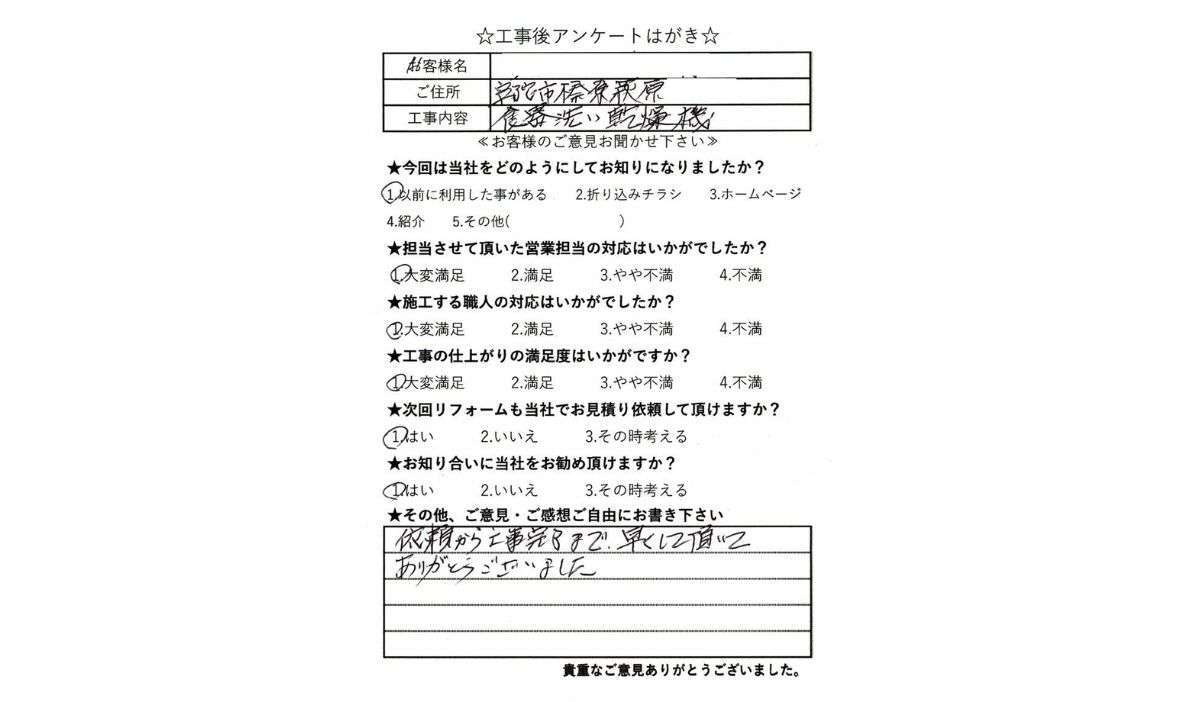 ☆工事後アンケートはがき☆
お客様名
ご住所 宇陀市榛原萩原
工事内容 食器洗い乾燥機
≪お客様のご意見お聞かせ下さい≫
★今回は当社をどのようにしてお知りになりましたか？
1.以前に利用した事がある 2.折り込みチラシ 3.ホームページ
4.紹介 5.その他( )
★担当させて頂いた営業担当の対応はいかがでしたか？
1.大変満足 2.満足 3.やや不満 4.不満
★施工する職人の対応はいかがでしたか？
1.大変満足 2.満足 3.やや不満 4.不満
★工事の仕上がりの満足度はいかがですか？
1.大変満足 2.満足 3.やや不満 4.不満
★次回リフォームも当社でお見積り依頼して頂けますか？
1.はい 2.いいえ 3.その時考える
★お知り合いに当社をお勧め頂けますか？
1.はい 2.いいえ 3.その時考える
★その他、ご意見・ご感想ご自由にお書き下さい
依頼から工事完了まで、早くして頂いて
ありがとうございました
貴重なご意見ありがとうございました。